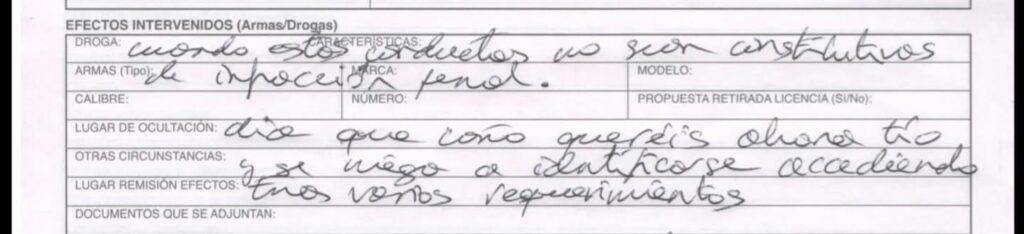 EFECTOS INTERVENIDOS (Armas/Drogas)
DROGA: CARACTERÍSTICAS:
cuando estas conductas no sean constitutivas
ARMAS (Tipo): MARCA: MODELO:
de infracción penal.
CALIBRE: NÚMERO: PROPUESTA RETIRADA LICENCIA (Sí/No):
LUGAR DE OCULTACIÓN: dice que coño queréis ahora tío
OTRAS CIRCUNSTANCIAS: y se niega a identificarse accediendo
LUGAR REMISIÓN EFECTOS: tras varios requerimientos
DOCUMENTOS QUE SE ADJUNTAN: